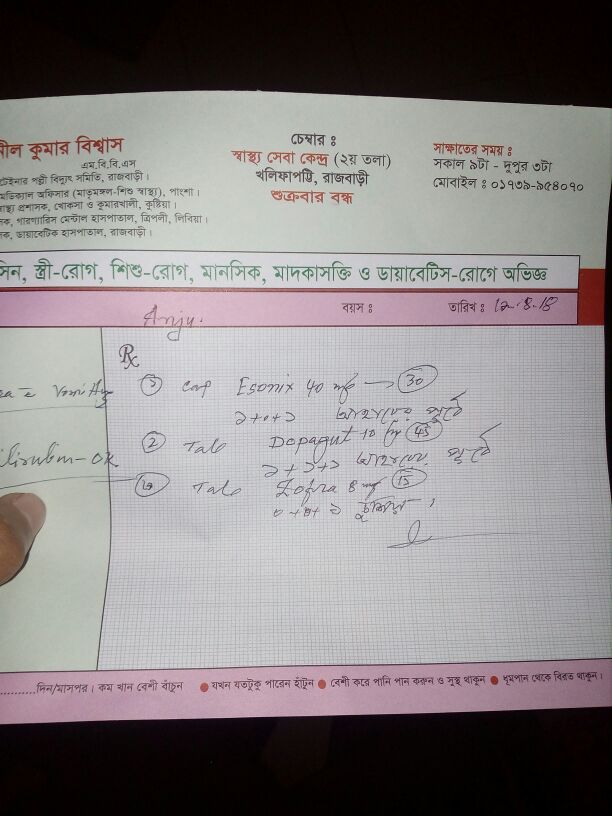 নীল কুমার বিশ্বাস
এম.বি.বি.এস
পল্লী বিদ্যুৎ সমিতি, রাজবাড়ী।
মেডিক্যাল অফিসার (মাতৃমঙ্গল-শিশু স্বাস্থ্য), পাংশা।
স্বাস্থ্য প্রশাসক, খোকসা ও কুমারখালী, কুষ্টিয়া।
মেন্টাল হাসপাতাল, ত্রিপলী, লিবিয়া।
ডায়াবেটিক হাসপাতাল, রাজবাড়ী।
চেম্বার :
স্বাস্থ্য সেবা কেন্দ্র (২য় তলা)
খলিফাপট্টি, রাজবাড়ী
শুক্রবার বন্ধ
সাক্ষাতের সময় :
সকাল ৯টা - দুপুর ৩টা
মোবাইল : ০১৭৩৯-৯৫৪০৭০
সিন, স্ত্রী-রোগ, শিশু-রোগ, মানসিক, মাদকাসক্তি ও ডায়াবেটিস-রোগে অভিজ্ঞ
Anju.
বয়স :
তারিখ : 12.8.18
Rx
Vomiting
১ Cap Esonix 40 mg → 30
১+০+১ আহারের পূর্বে
2 Tab Dopagut 10 mg 45
১+১+১ আহারের পূর্বে
lirubin - OK
৩ Tab Zofra 8 mg 15
০+০+১
দিন/মাসপর। কম খান বেশী বাঁচুন ● যখন যতটুকু পারেন হাঁটুন ● বেশী করে পানি পান করুন ও সুস্থ থাকুন ● ধূমপান থেকে বিরত থাকুন।